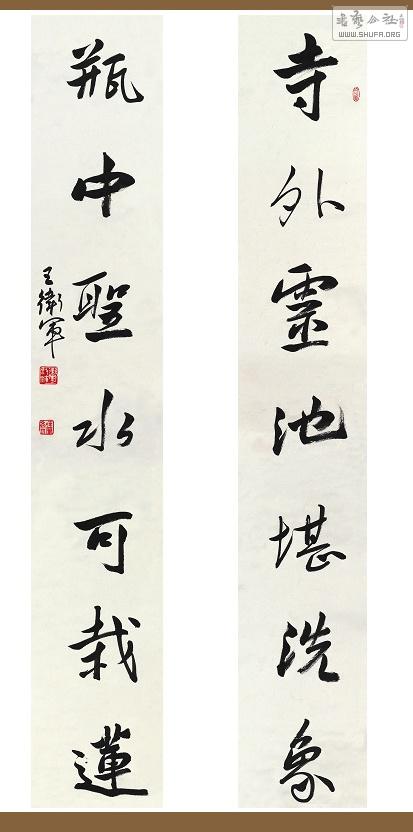 寺外靈池堪洗象
瓶中聖水可栽蓮
王衛軍
WWW.SHUFA.ORG